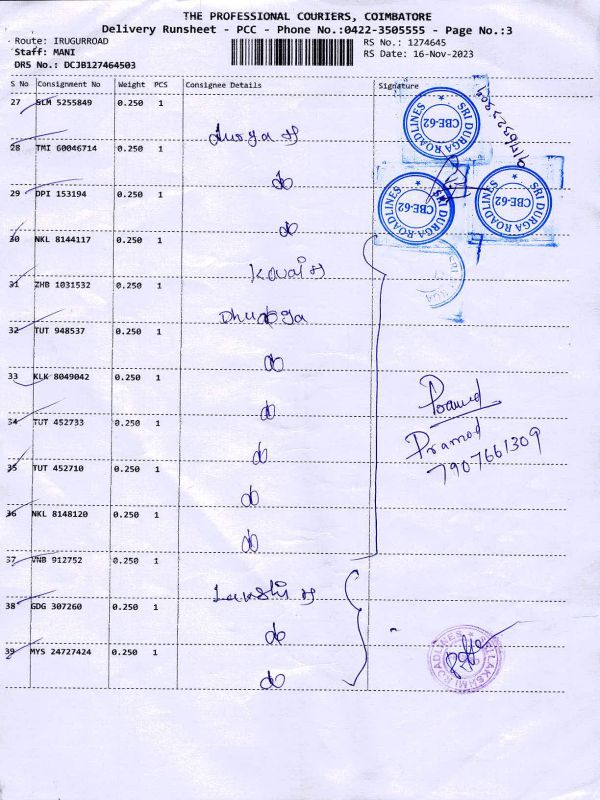 THE PROFESSIONAL COURIERS, COIMBATORE
Delivery Runsheet - PCC - Phone No.:0422-3505555 - Page No.:3
Route: IRUGURROAD
RS No.: 1274645
Staff: MANI
RS Date: 16-Nov-2023
DRS No.: DCJB127464503
S No Consignment No Weight PCS Consignee Details Signature
27 SLM 5255849 0.250 1
Durga H
28 TMI 60046714 0.250 1
do
29 DPI 153194 0.250 1
do
30 NKL 8144117 0.250 1
Kovai H
31 ZHB 1031532 0.250 1
Dhurga
32 TUT 948537 0.250 1
do
33 KLK 8049042 0.250 1
do
34 TUT 452733 0.250 1
do
35 TUT 452710 0.250 1
do
36 NKL 8148120 0.250 1
do
37 VNB 912752 0.250 1
Lakshi H
38 GDG 307260 0.250 1
do
39 MYS 24727424 0.250 1
do
SRI DURGA ROADLINES
CBE-62
SRI DURGA ROADLINES
CBE-62
SRI DURGA ROADLINES
CBE-62
Pramod
Pramod
7907661309
SRI LAKSHMI ROADLINES